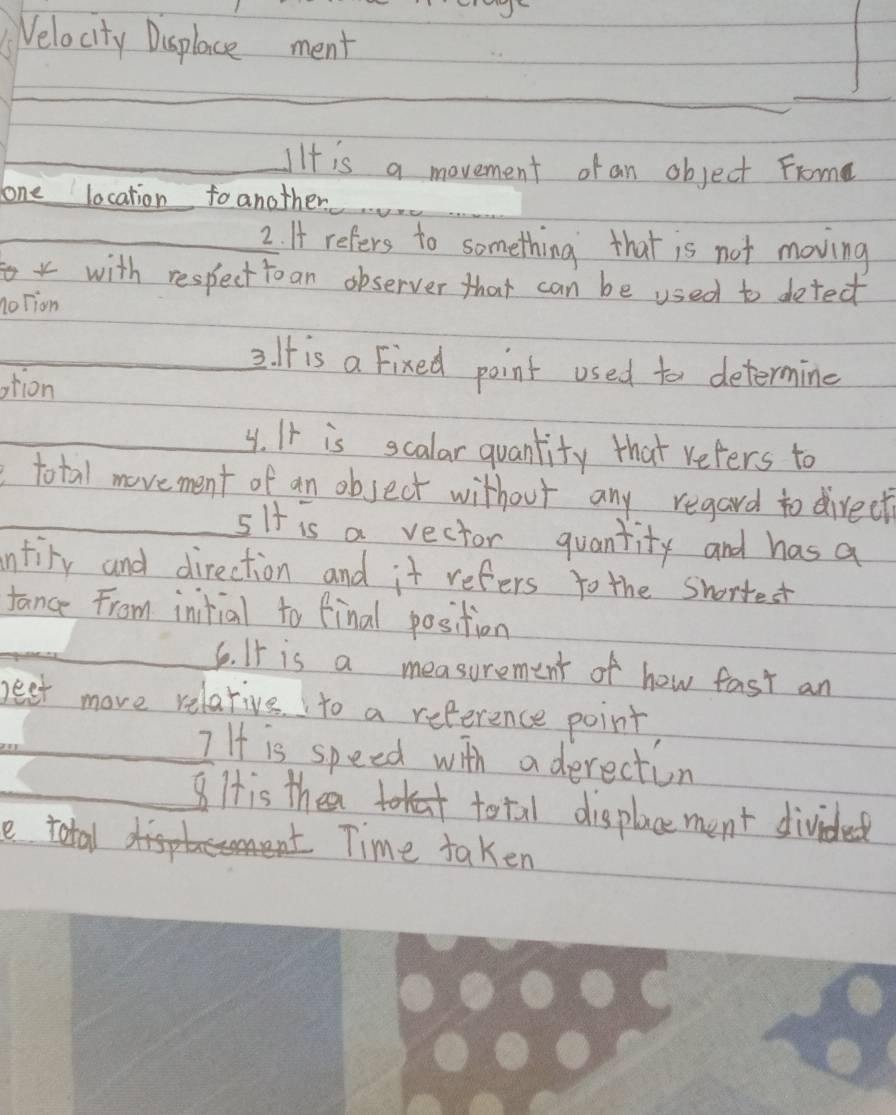 Velocity Displace ment
1 It is a movement of an object From
one location to another
2. It refers to something that is not moving
with respect to an observer that can be used to detect
motion
3. It is a Fixed point used to determine
otion
4. It is scalar quantity that refers to
total movement of an object without any regard to directi
5 It is a vector quantity and has a
ntity and direction and it refers to the Shortest
tance From initial to final position
6. It is a measurement of how fast an
ject move relative to a reference point
7 It is speed with a derection
8 It is the total displacement divided
e total displacement Time taken